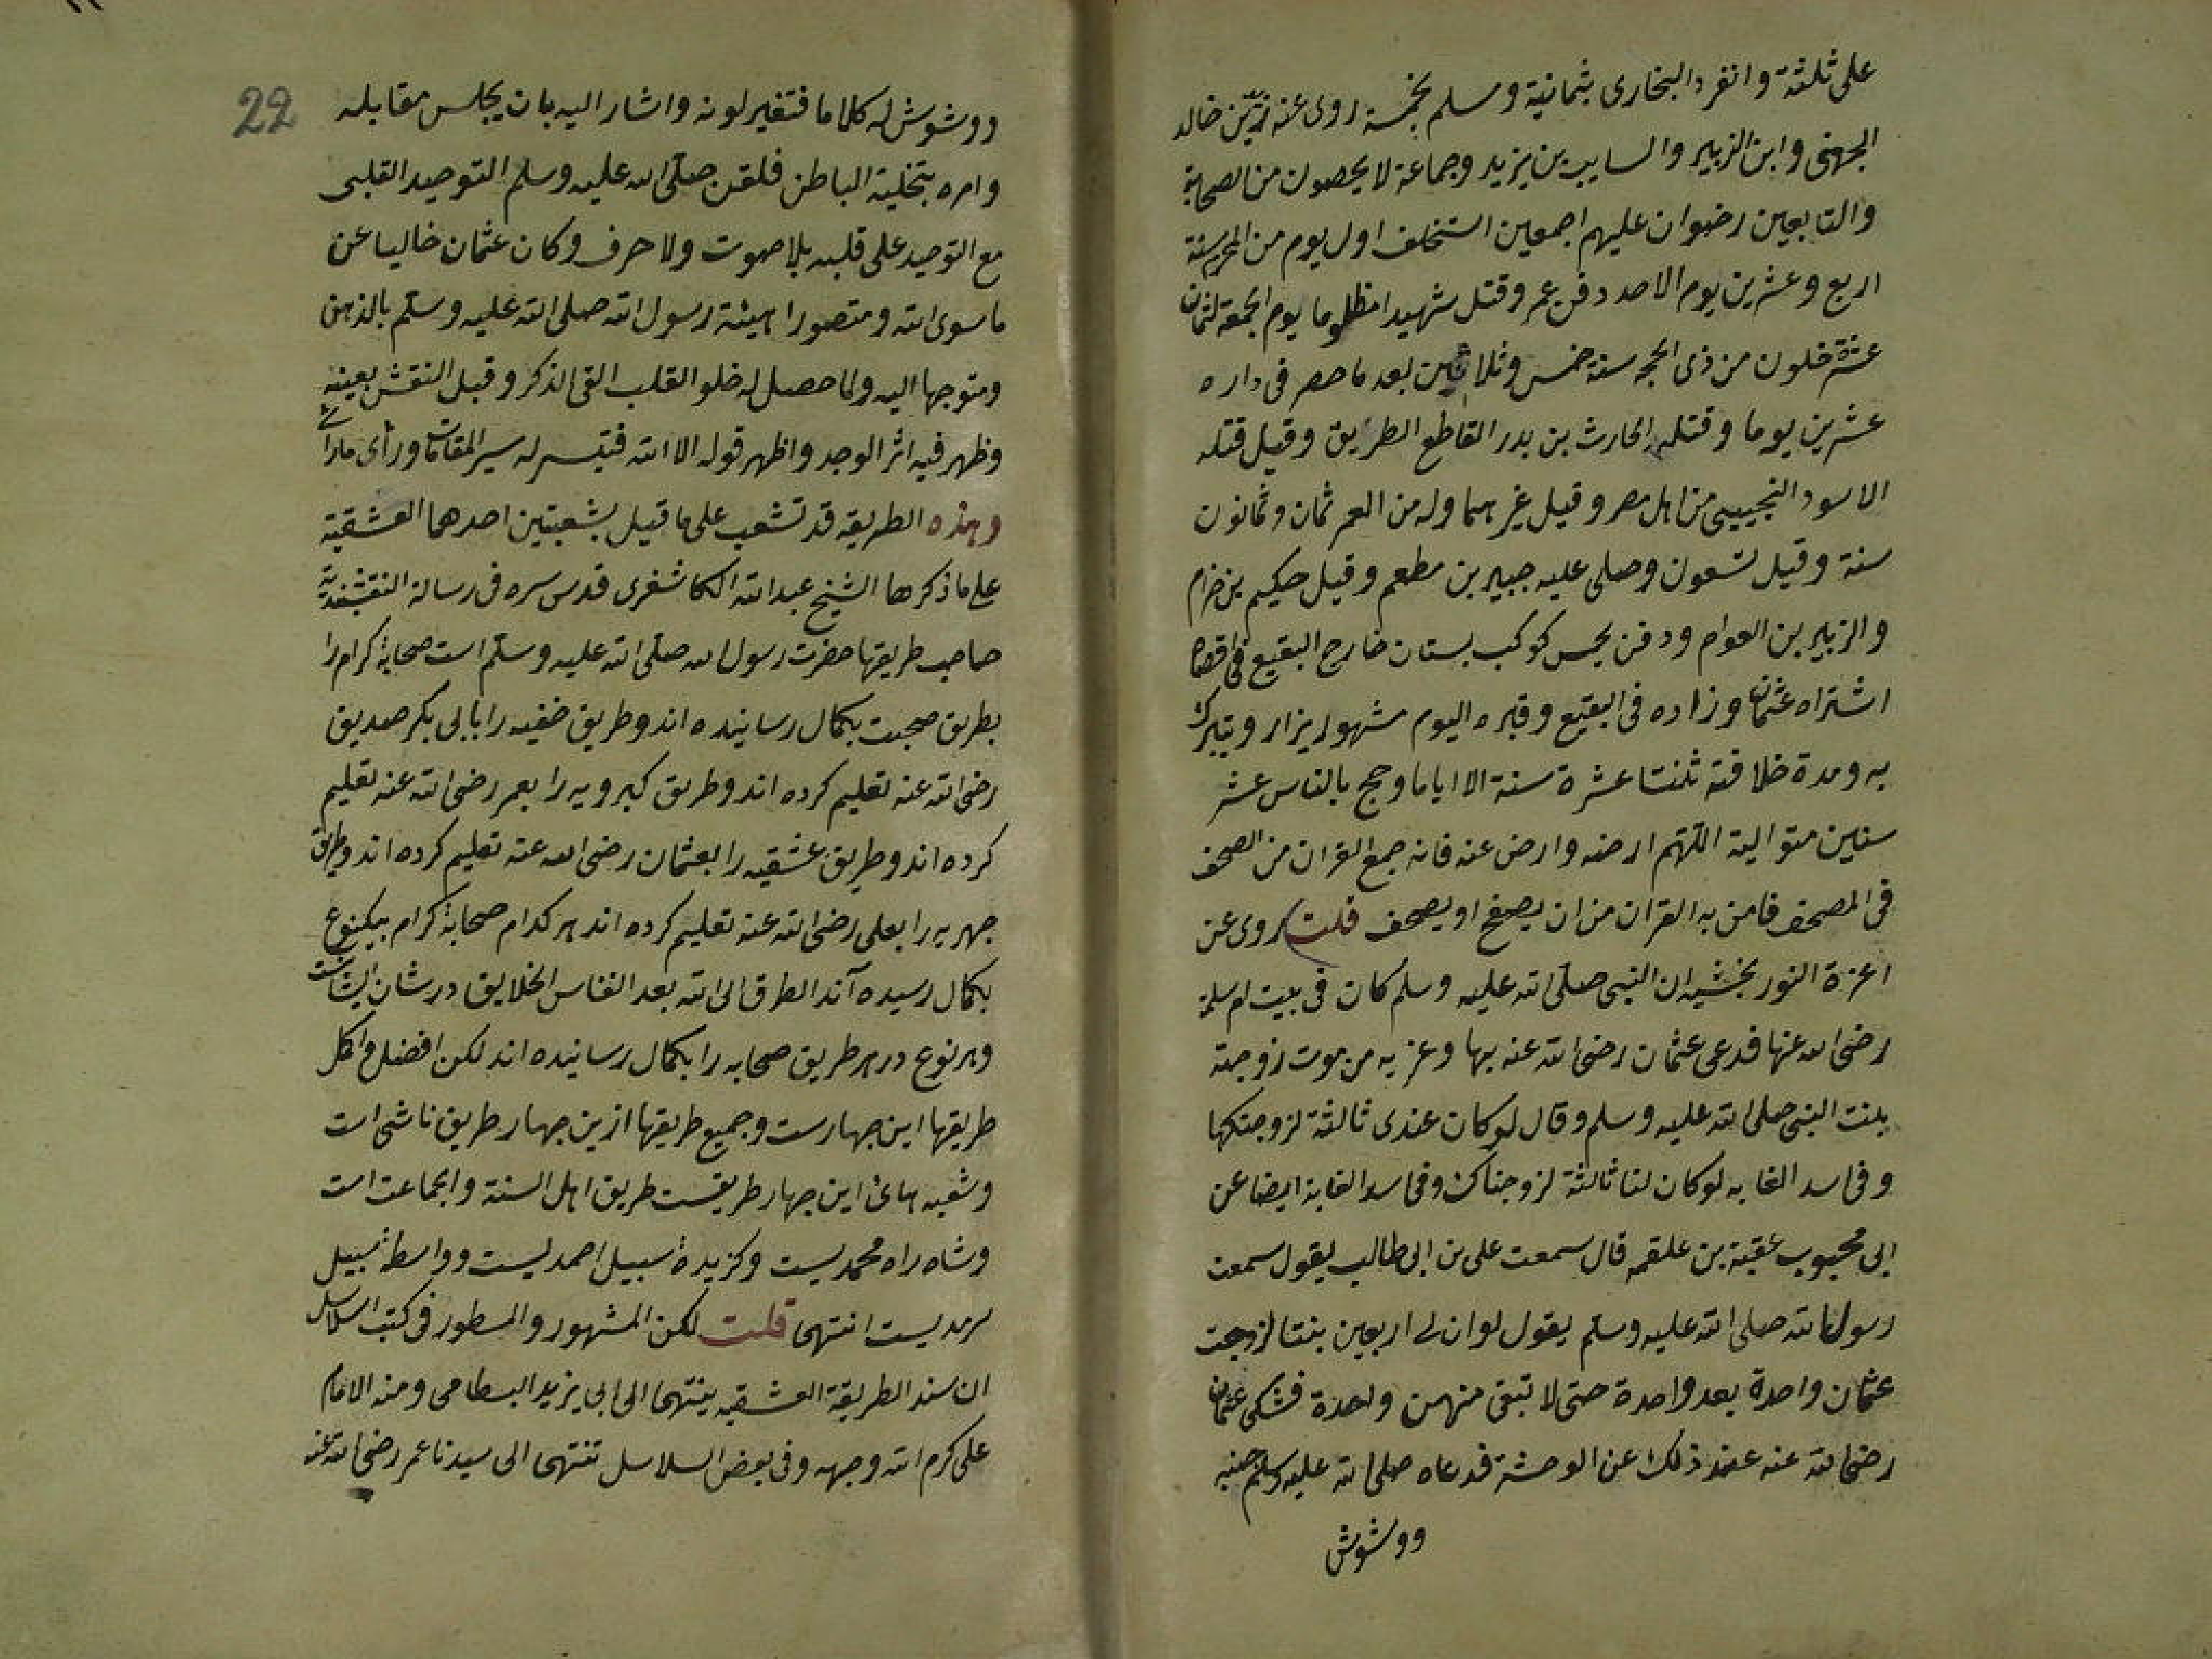 على ثلثة وانفرد البخارى بثمانية ومسلم بخمسة روى عنه زيد بن خالد
الجهنى وابن الزبير والسايب بن يزيد وجماعة لا يحصون من الصحابة
والتابعين رضوان عليهم اجمعين استخلف اول يوم من المحرم سنة
اربع وعشرين يوم الاحد دفن عمر وقتل شهيدا مظلوما يوم الجمعة لثمان
عشرة خلون من ذى الحجه سنة خمس وثلاثين بعد ما حصر فى داره
عشرين يوما وقتله الحارث بن بدر القاطع الطريق وقيل قتله
الاسود التجيبى من اهل مصر وقيل غيرهما وله من العمر ثمان وثمانون
سنة وقيل تسعون وصلى عليه جبير بن مطعم وقيل حكيم بن حزام
والزبير بن العوام ودفن بحس كوكب بستان خارج البقيع فى اقصاها
اشتراه عثمان وزاده فى البقيع وقبره اليوم مشهور يزار ويتبرك
به ومدة خلافته ثلثتا عشرة سنة الا اياما وحج بالناس عشر
سنين متوالية اللهم ارضه وارض عنه فانه جمع القران من الصحف
فى المصحف فامن به القران من ان يصفح او يصحف قلت روى عن
اعزة النور بخشيه ان النبى صلى الله عليه وسلم كان فى بيت ام سلمة
رضى الله عنها فدعى عثمان رضى الله عنه بها وعزيه من موت زوجته
بنت النبى صلى الله عليه وسلم وقال لو كان عندى ثالثة لزوجتكها
وفى اسد الغابه لو كان لنا ثالثة لزوجناك وفى اسد الغابة ايضا عن
ابى محبوب عقبة بن علقمه قال سمعت على بن ابى طالب يقول سمعت
رسول الله صلى الله عليه وسلم يقول لو ان لى اربعين بنتا لزوجت
عثمان واحدة بعد واحدة حتى لا تبقى منهن واحدة فشكى عثمان
رضى الله عنه عند ذلك عن الوحشة فدعاه صلى الله عليه وسلم جنبه
ووشوش
22
ووشوش له كلاما فتغير لونه واشار اليه بان يجلس مقابله
وامره بتخلية الباطن فلقن صلى الله عليه وسلم التوحيد القلبى
مع التوحيد على قلبه بلا صوت ولا حرف وكان عثمان خاليا عن
ما سوى الله ومتصورا هيئة رسول الله صلى الله عليه وسلم بالذهن
ومتوجها اليه ولما حصل له خلو القلب القى الذكر وقبل النقش بعينه
وظهر فيه اثر الوجد واظهر قوله الا الله فتيسر له سير المقامات ورأى ما رأى
وهذه الطريقه قد تشعب على ما قيل بشعبتين احدهما العشقية
على ما ذكرها الشيخ عبد الله الكاشغرى قدس سره فى رسالة النقشبندية
صاحب طريقها حضرت رسول الله صلى الله عليه وسلم است صحابۀ كرام را
بطريق صحبت بكمال رسانيده اند وطريق خفيه را بابى بكر صديق
رضى الله عنه تعليم كرده اند وطريق كبرويه را بعمر رضى الله عنه تعليم
كرده اند وطريق عشقيه را بعثمان رضى الله عنه تعليم كرده اند وطريق
جهريه را بعلى رضى الله عنه تعليم كرده اند هر كدام صحابۀ كرام بيكنوع
بكمال رسيده آند الطرق الى الله بعد انفاس الخلايق در شان ايشانست
وهر نوع در هر طريق صحابه را بكمال رسانيده اند لكن افضل واكمل
طريقها اين جهارست وجميع طريقها ازين جهار طريق ناشى است
وشعبه هائ اين جهار طريقست طريق اهل السنة والجماعت است
وشاه راه محمديست وكزيدۀ سبيل احمديست وواسطۀ سبيل
سرمديست انتهى قلت لكن المشهور والمسطور فى كتب السلاسل
ان سند الطريقة العشقيه ينتهى الى ابى يزيد البسطامى ومنه الامام
على كرم الله وجهه وفى بعض السلاسل تنتهى الى سيدنا عمر رضى الله عنه